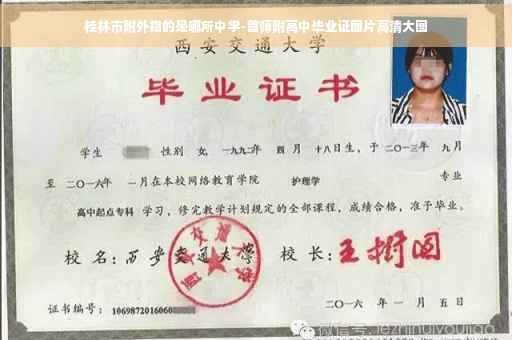 桂林市附外指的是哪所中学-首师附高中毕业证图片高清大图
西安交通大学
毕业证书
学生 性别 女, 一九九二年 四月 十八日生, 于 二〇一三年 九月
至 二〇一六年 一月在本校网络教育学院 护理学 专业
高中起点专科 学习, 修完教学计划规定的全部课程, 成绩合格, 准予毕业。
校名: 西安交通大学 校长: 王树国
西安交通大学
证书编号: 1069872016060
二〇一六年 一月 五日
微信号: jezhihuiyoujiao